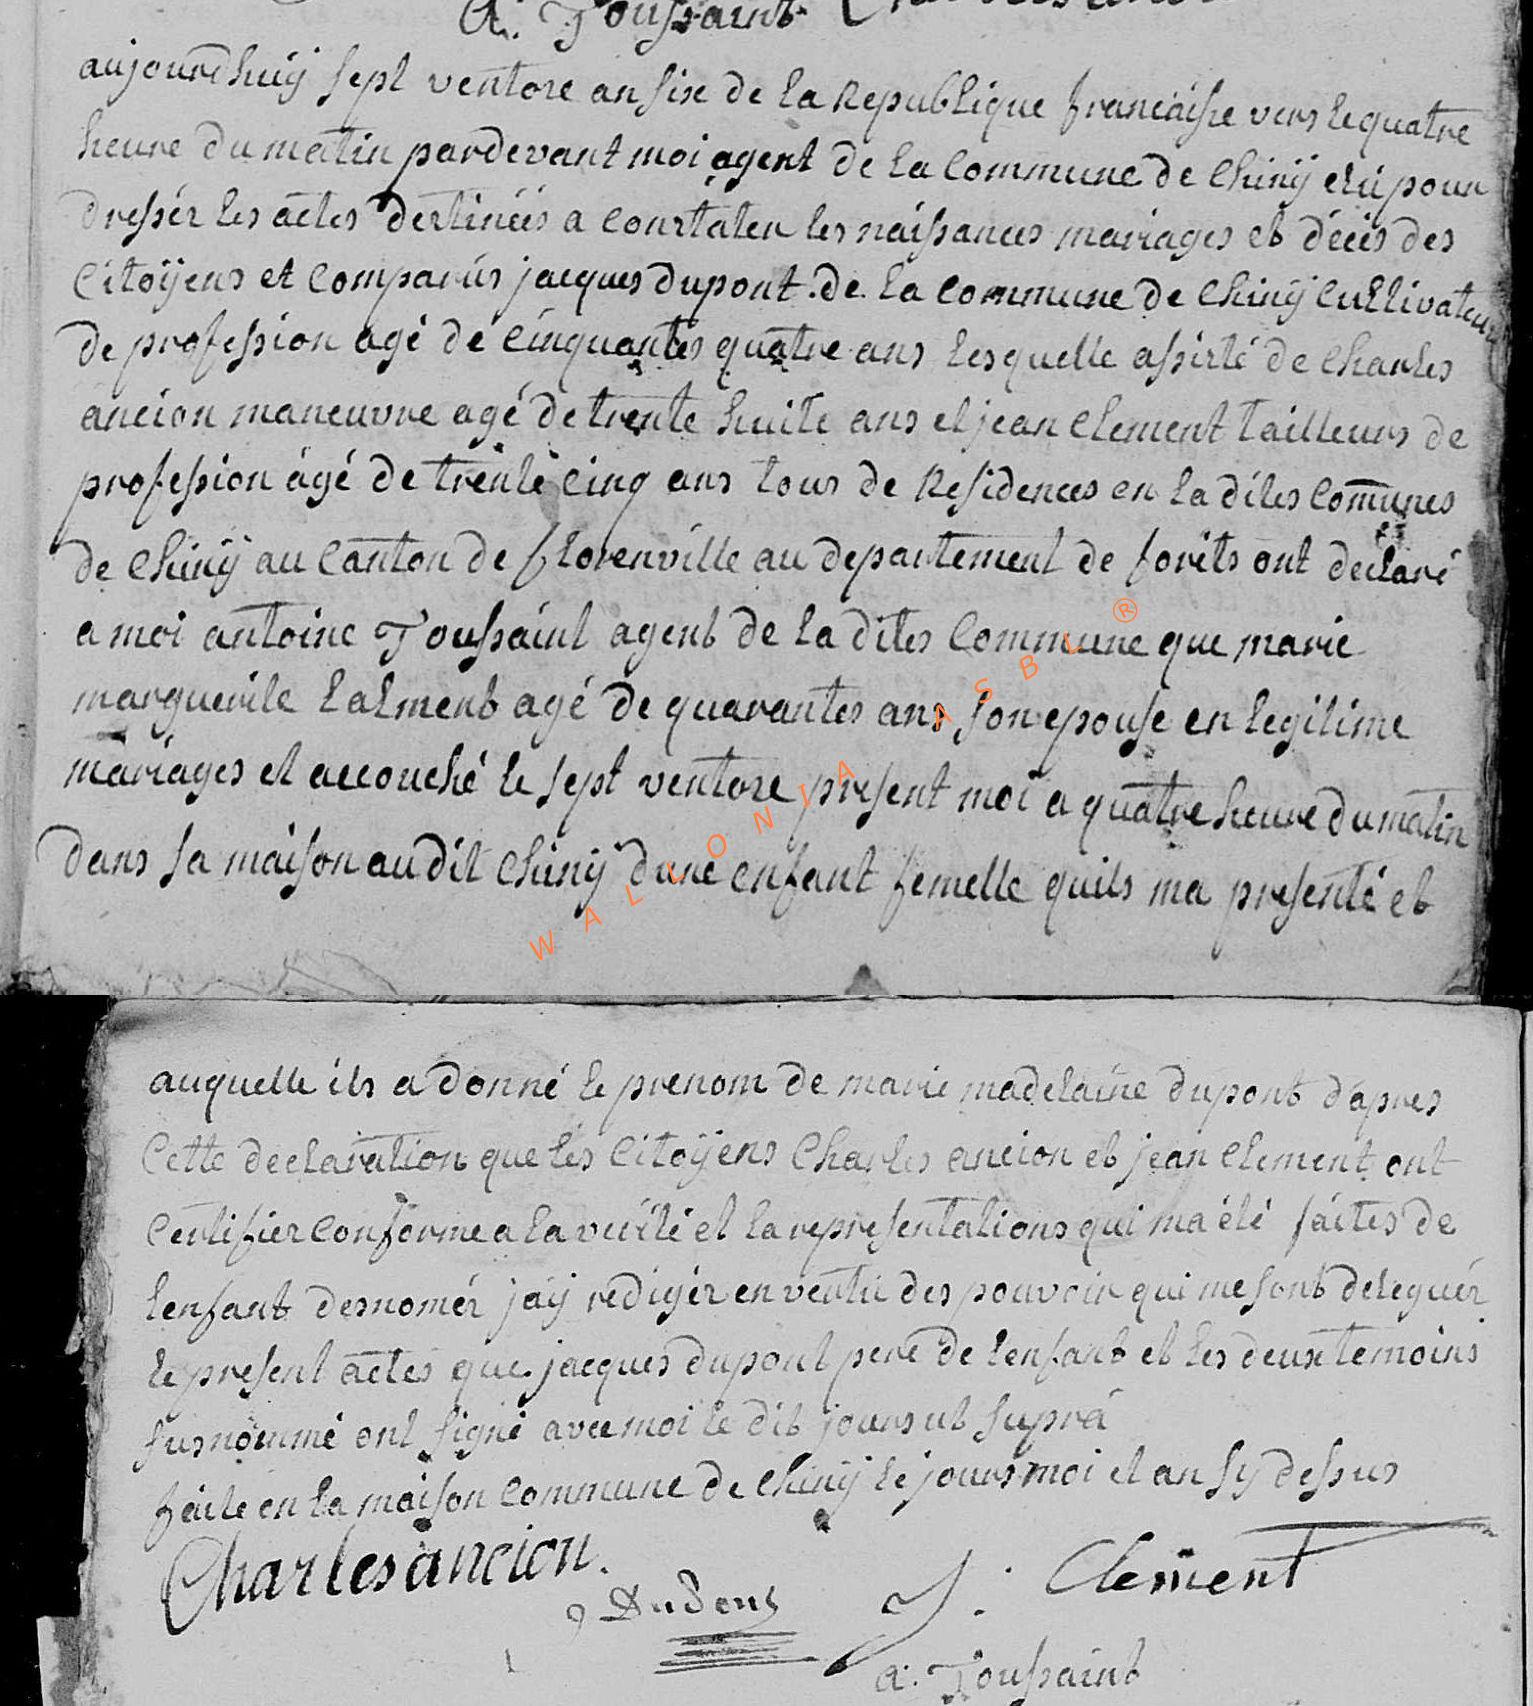 A. Toussaint
aujourdhuÿ sept ventore an six de la Republique francaisse vers le quatre
heure du matin pardevant moi agent de la Commune de Chinÿ elú pour
dresser les actes destinées a constater les naissances mariages et décés des
Citoÿens et Comparús jacques dupont de la Commune de Chinÿ Cultivateur
de profession agé de Cinquantes quatre ans lesquelle assisté de Charles
ancion maneuvre agé de trente huite ans et jean Clement tailleurs de
profession agé de trente Cinq ans tous de Residences en la dites Comunes
de Chinÿ au Canton de florenville au departement de forits ont declaré
a moi antoine Toussaint agent de la dites Commune que marie
marguerite Lalment agé de quarantes ans son epouse en legitime
mariages et accouché le sept ventore present moi a quatre heure du matin
dans sa maison au dit Chinÿ dune enfant femelle quils ma presenté et
WALLONIA ASBL ®
auquelle ils a donné le prenom de marie madelaine dupont dapres
Cette declaration que les Citoÿens Charles ancion et jean Clement ont
Certifier Conforme a la verité et la representations qui ma été faites de
lenfant desnomér jaÿ rediger en vertu des pouvoir qui me sont deleguér
le present actes que jacques dupont pere de lenfant et les deux temoins
susnommé ont signé avec moi le dit jours ut supra
faite en la maison Commune de Chinÿ le jours moi et an sy dessus
Charles ancion.
J. Clement
A. Toussaint